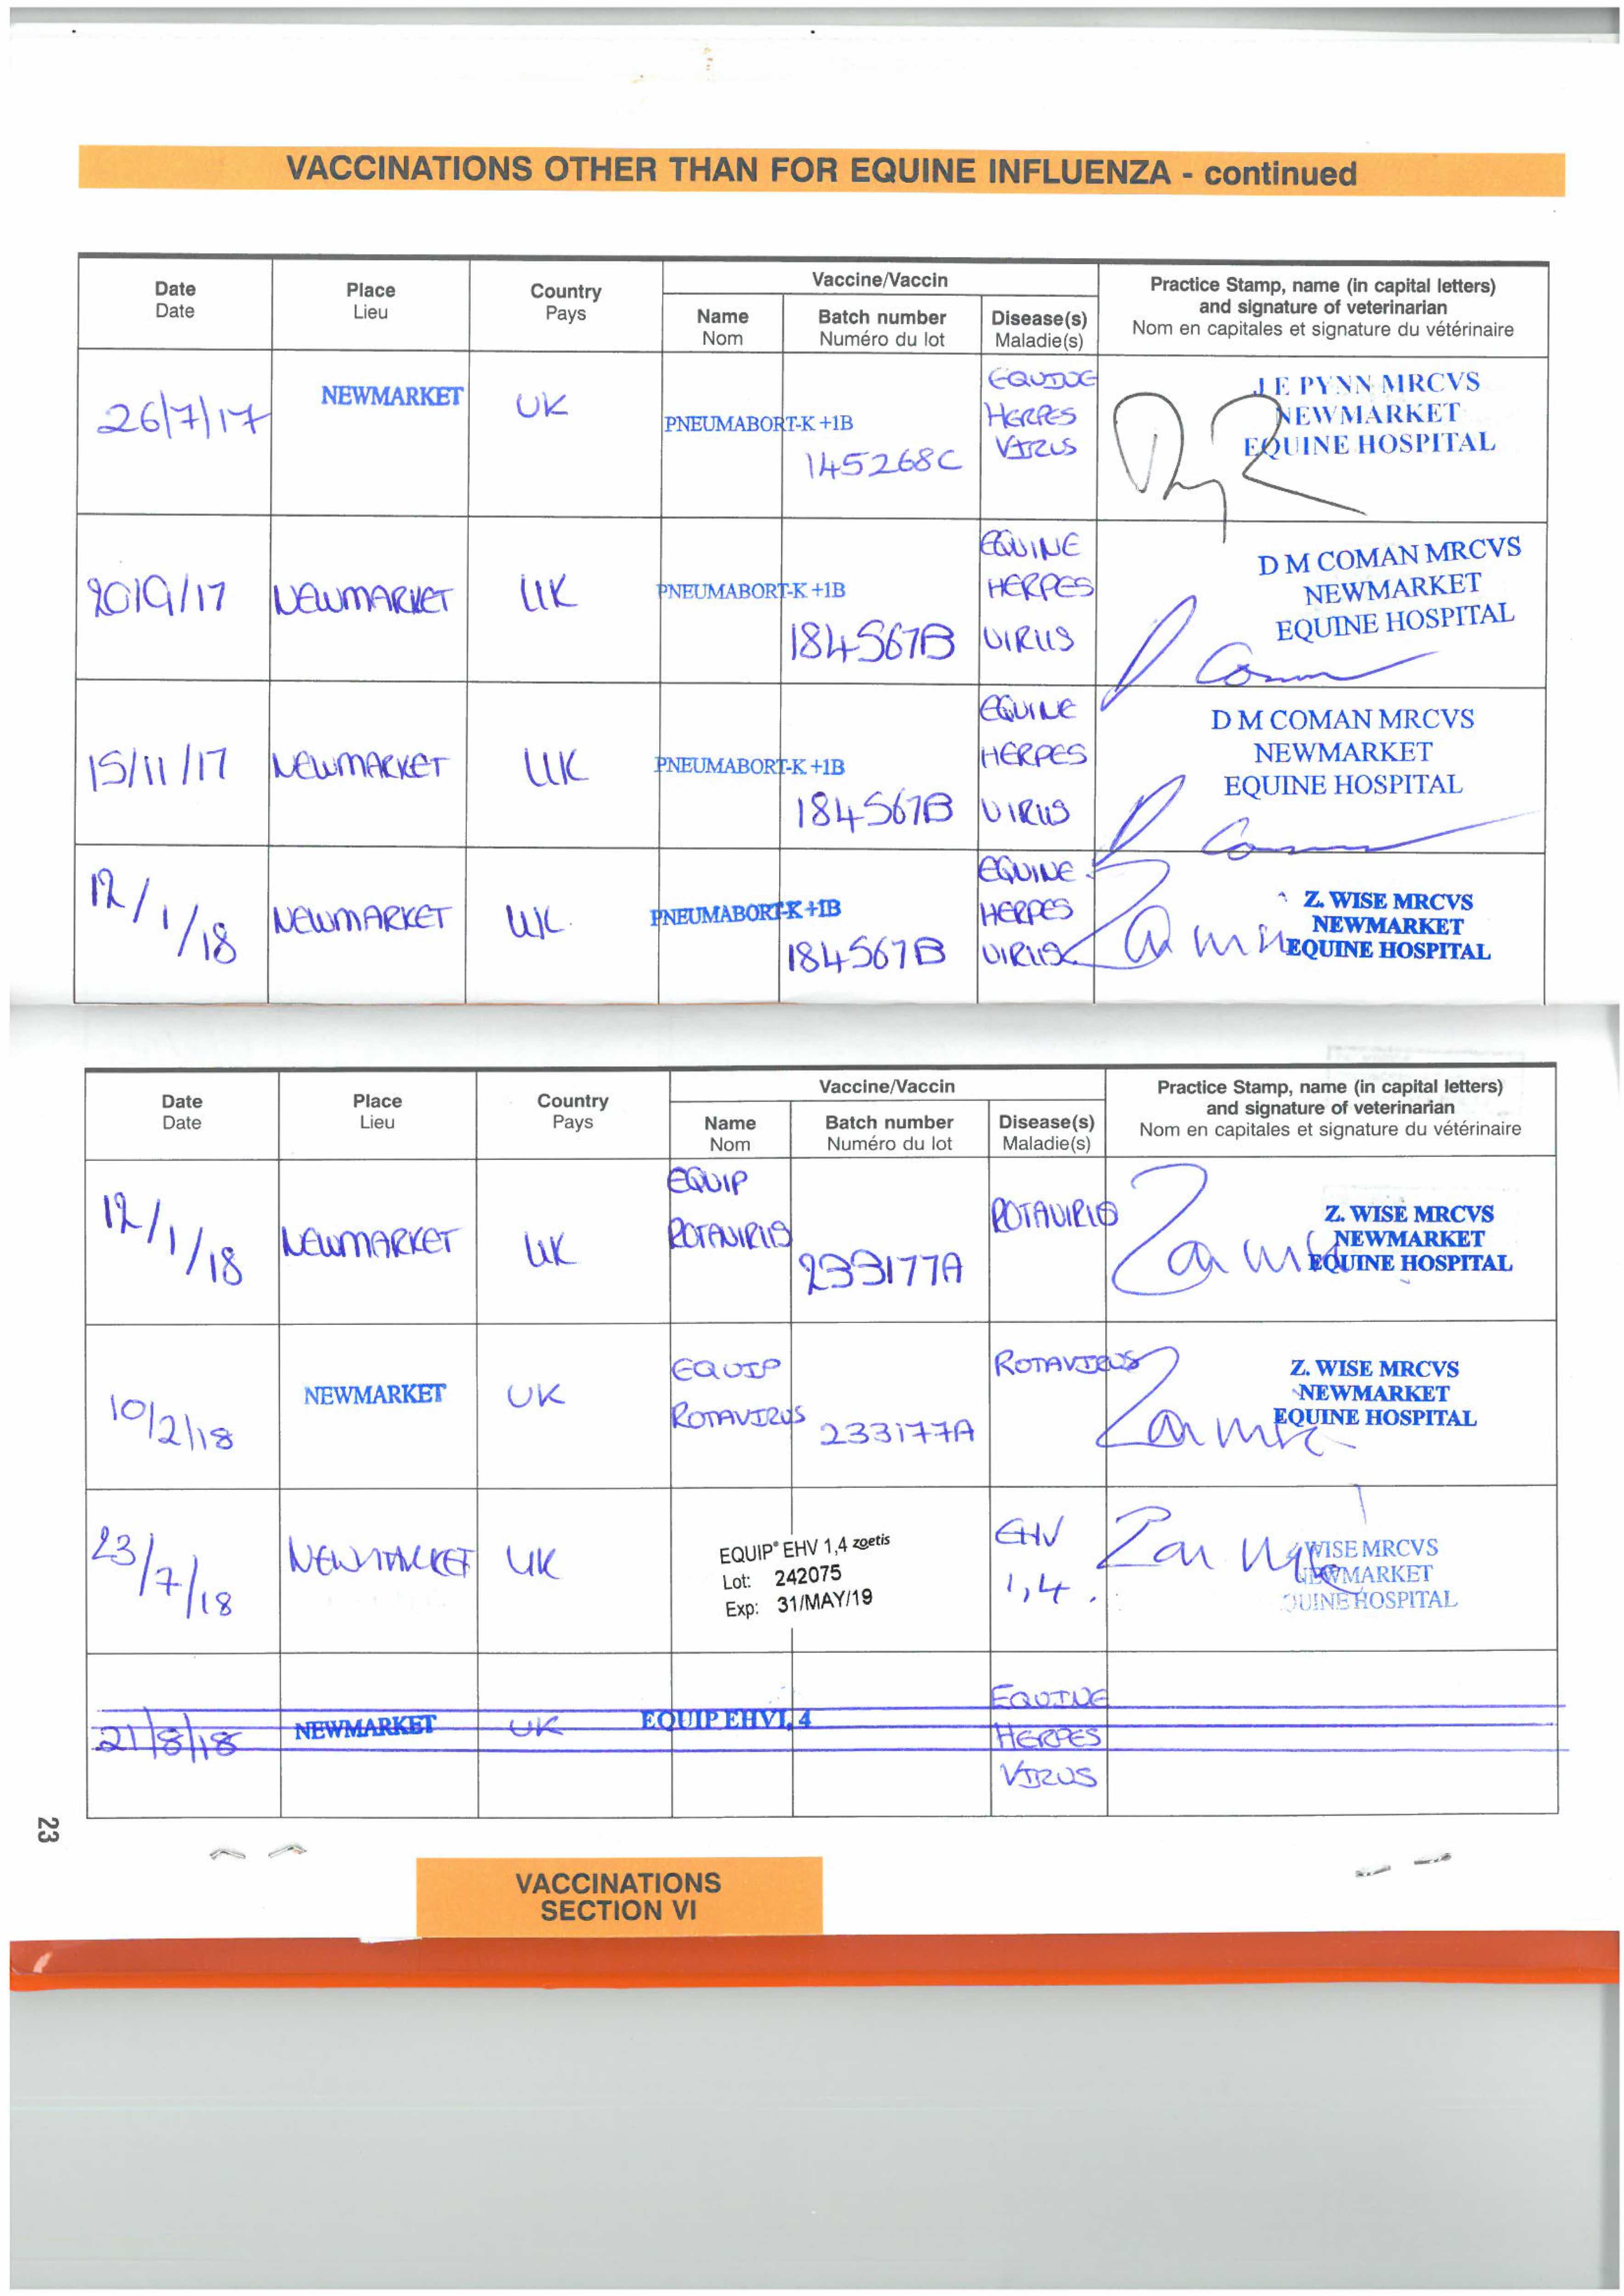 VACCINATIONS OTHER THAN FOR EQUINE INFLUENZA - continued
Date Place Country Vaccine/Vaccin Practice Stamp, name (in capital letters)
Date Lieu Pays Name Batch number Disease(s) and signature of veterinarian
Nom Numéro du lot Maladie(s) Nom en capitales et signature du vétérinaire
26/7/17 NEWMARKET UK PNEUMABORT-K +1B 145268C EQUINE J E PYNN MRCVS
HERPES NEWMARKET
VIRUS EQUINE HOSPITAL
20/9/17 NEWMARKET UK PNEUMABORT-K +1B 184567B EQUINE D M COMAN MRCVS
HERPES NEWMARKET
VIRUS EQUINE HOSPITAL
15/11/17 NEWMARKET UK PNEUMABORT-K +1B 184567B EQUINE D M COMAN MRCVS
HERPES NEWMARKET
VIRUS EQUINE HOSPITAL
12/1/18 NEWMARKET UK. PNEUMABORT-K +1B 184567B EQUINE Z. WISE MRCVS
HERPES NEWMARKET
VIRUS EQUINE HOSPITAL
Date Place Country Vaccine/Vaccin Practice Stamp, name (in capital letters)
Date Lieu Pays Name Batch number Disease(s) and signature of veterinarian
Nom Numéro du lot Maladie(s) Nom en capitales et signature du vétérinaire
12/1/18 NEWMARKET UK EQUIP 233177A ROTAVIRUS Z. WISE MRCVS
ROTAVIRUS NEWMARKET
EQUINE HOSPITAL
10/2/18 NEWMARKET UK EQUIP 233177A ROTAVIRUS Z. WISE MRCVS
ROTAVIRUS NEWMARKET
EQUINE HOSPITAL
23/7/18 NEWMARKET UK EQUIP® EHV 1,4 zoetis EHV WISE MRCVS
Lot: 242075 1,4. NEWMARKET
Exp: 31/MAY/19 QUINE HOSPITAL
21/8/18 NEWMARKET UK EQUIP EHV1, 4 EQUINE
HERPES
VIRUS
23
VACCINATIONS
SECTION VI